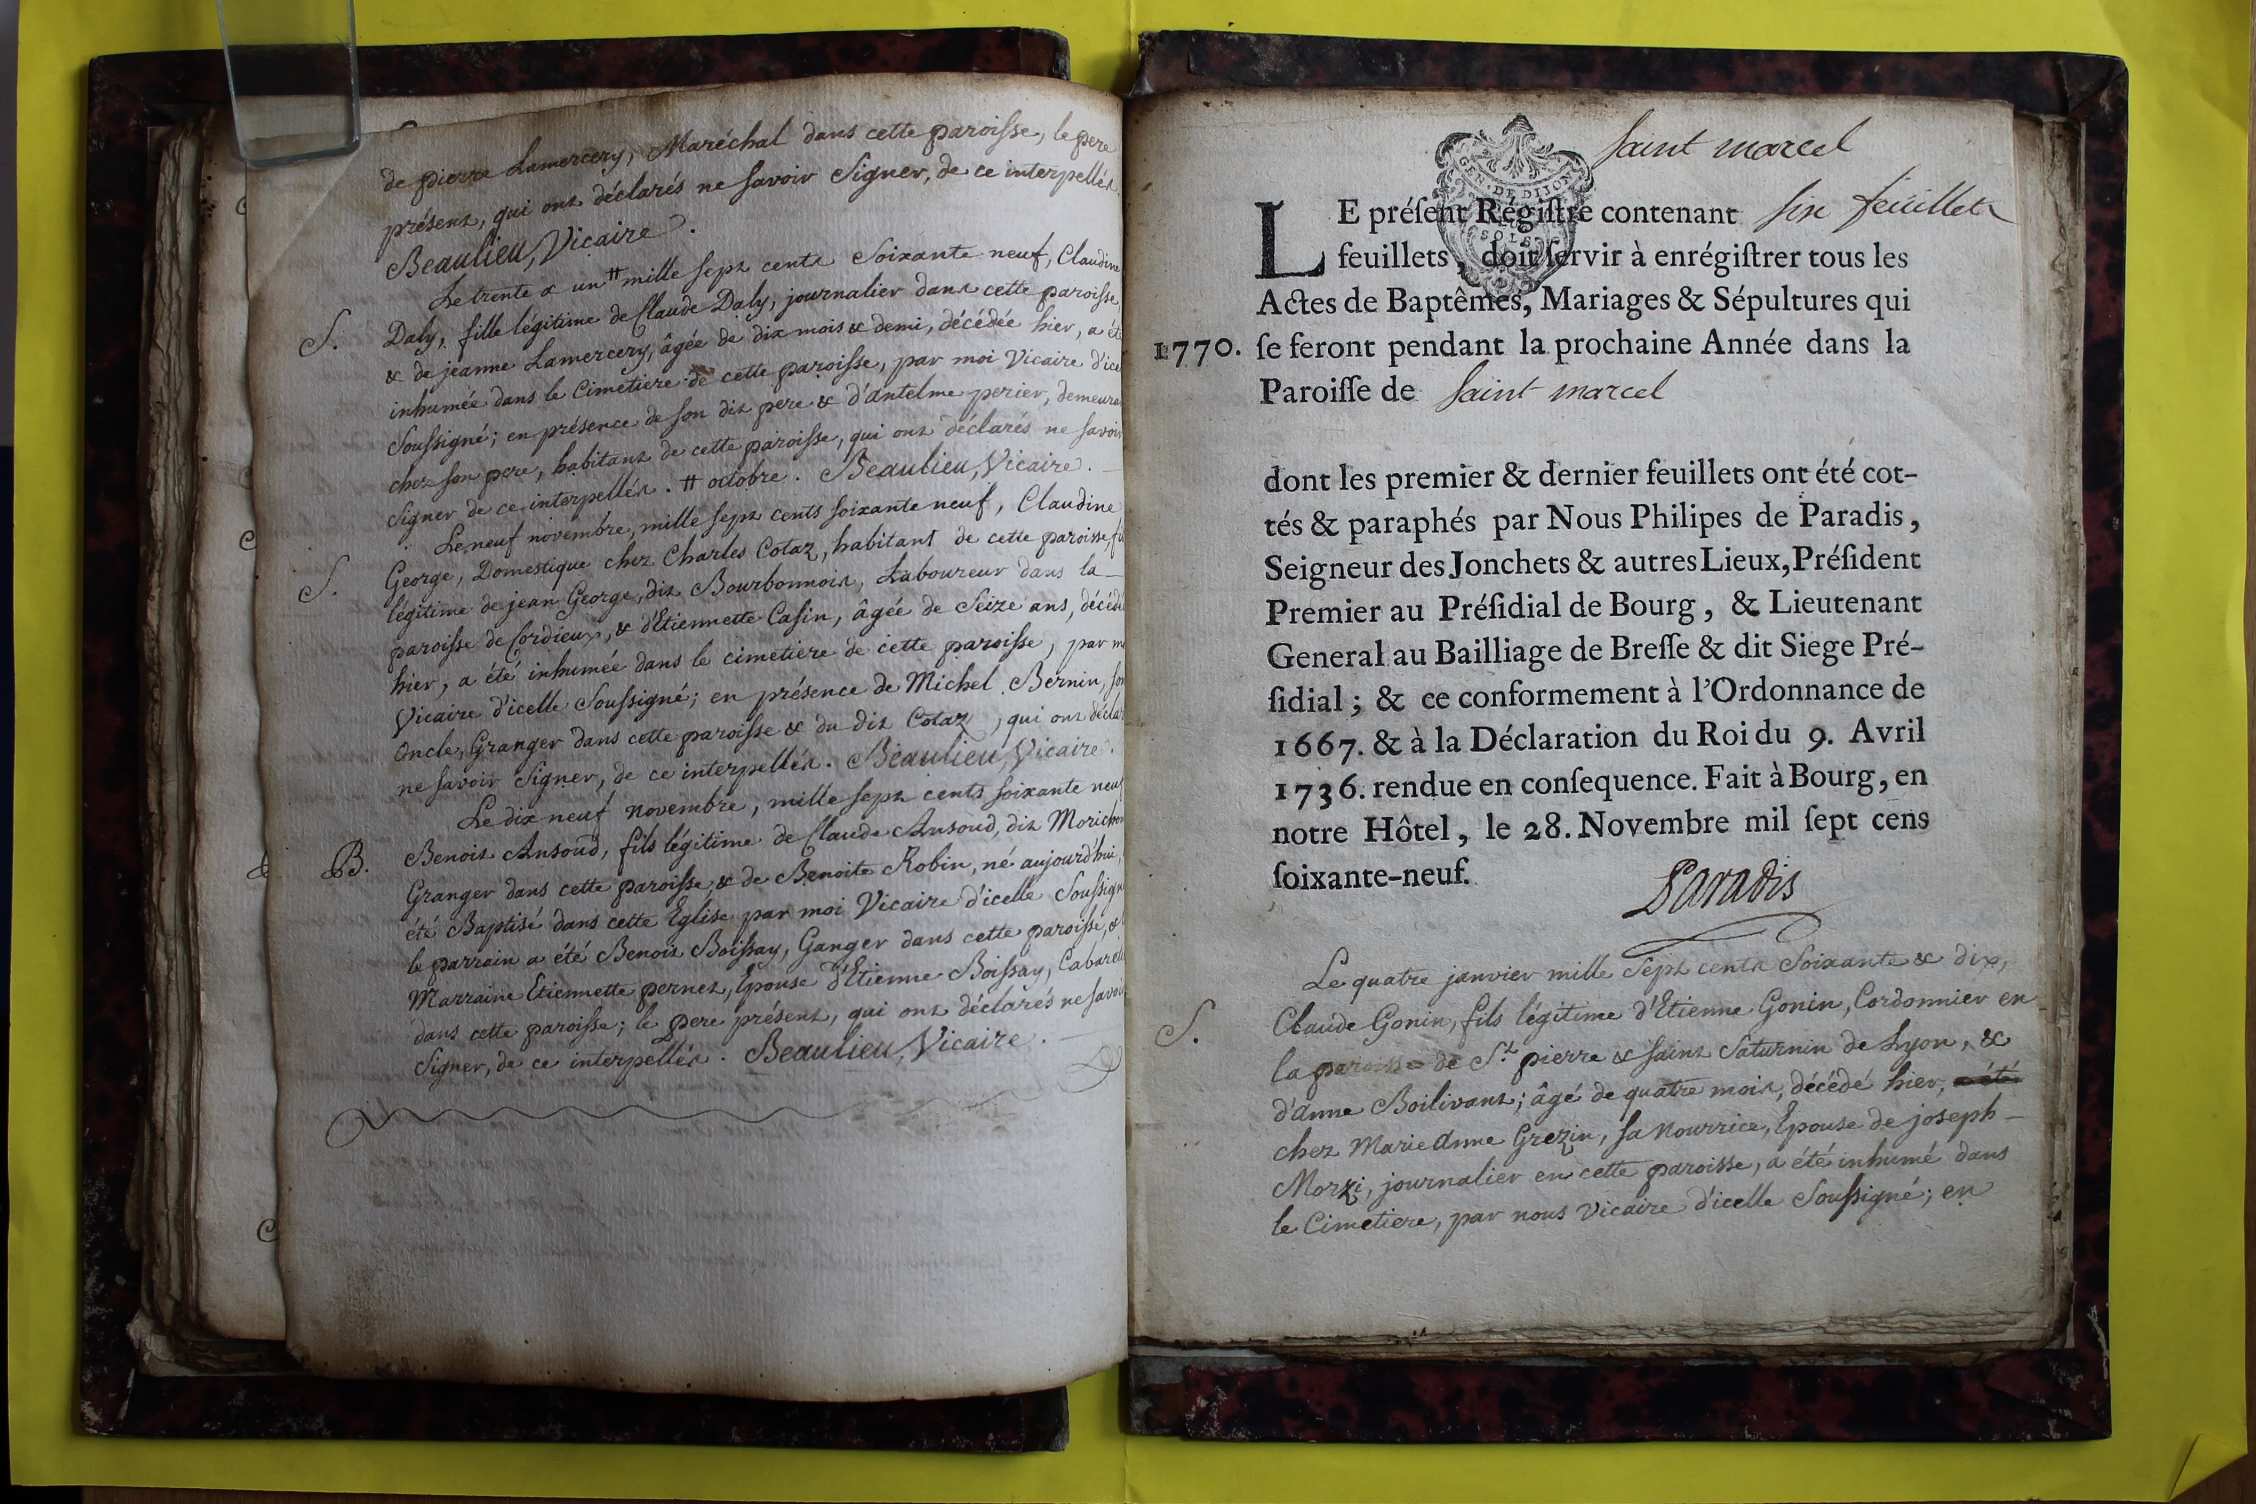 de pierre Lamercery, Maréchal dans cette paroisse, le pere
présent, qui ont déclarés ne savoir Signer, de ce interpellés.
Beaulieu, Vicaire.
Le trente & un # mille sept cents Soixante neuf, Claudine
S. Daly, fille légitime de Claude Daly, journalier dans cette paroisse
& de jeanne Lamercery, âgée de dix mois & demi, décédée hier, a été
inhumée dans le Cimetiere de cette paroisse, par moi Vicaire d'ice
Soussigné; en présence de son dit pere & d'antelme perier, demeura
chez son pere, habitant de cette paroisse, qui ont déclarés ne savoir
Signer de ce interpellés. # octobre. Beaulieu, Vicaire.
Le neuf novembre, mille sept cents soixante neuf, Claudine
S. George, Domestique chez Charles Cotaz, habitant de cette paroisse, fi
légitime de jean George, dit Bourbonnois, Laboureur dans la
paroisse de Cordieux, & d'Etiennette Casin, âgée de Seize ans, décédé
hier, a été inhumée dans le cimetiere de cette paroisse, par m
Vicaire d'icelle Soussigné; en présence de Michel Bernin, son
Oncle, Granger dans cette paroisse & du dit Cotaz, qui ont déclar
ne savoir Signer, de ce interpellés. Beaulieu, Vicaire.
Le dix neuf novembre, mille sept cents soixante neuf
B. Benoit Ansoud, fils légitime de Claude Ansoud, dit Morichon
Granger dans cette paroisse, & de Benoite Robin, né aujourd'hui,
été Baptisé dans cette Eglise par moi Vicaire d'icelle Soussigné
le parrain a été Benoit Boissay, Ganger dans cette paroisse, &
Marraine Etiennette pernet, Epouse d'Etienne Boissay, Cabareti
dans cette paroisse; le pere présent, qui ont déclarés ne savoir
Signer, de ce interpellés. Beaulieu, Vicaire.
saint marcel
GEN. DE DIJON
SOLS
LE préſent Régiſtre contenant six feuillets
feuillets, doit ſervir à enrégiſtrer tous les
Actes de Baptêmes, Mariages & Sépultures qui
1770. ſe feront pendant la prochaine Année dans la
Paroiſſe de saint marcel
dont les premier & dernier feuillets ont été cot-
tés & paraphés par Nous Philipes de Paradis,
Seigneur des Jonchets & autres Lieux, Préſident
Premier au Préſidial de Bourg, & Lieutenant
General au Bailliage de Breſſe & dit Siege Pré-
ſidial; & ce conformement à l'Ordonnance de
1667. & à la Déclaration du Roi du 9. Avril
1736. rendue en conſequence. Fait à Bourg, en
notre Hôtel, le 28. Novembre mil ſept cens
ſoixante-neuf.
Paradis
Le quatre janvier mille Sept cents Soixante & dix,
S. Claude Gonin, fils légitime d'Etienne Gonin, Cordonnier en
la paroisse de St. pierre & saint Saturnin de Lyon, &
d'anne Boilivant; âgé de quatre mois, décédé hier, a été
chez Marie Anne Grezin, sa Nourrice, Epouse de joseph
Morzi, journalier en cette paroisse, a été inhumé dans
le Cimetiere, par nous vicaire d'icelle Soussigné; en